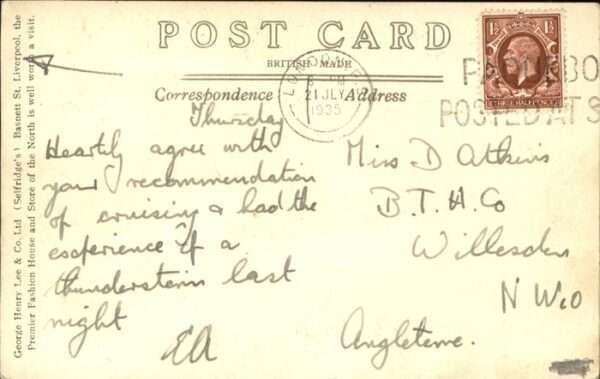 POST CARD
BRITISH MADE
Correspondence
Address
George Henry Lee & Co. Ltd (Selfridge's) Basnett St. Liverpool, the
Premier Fashion House and Store of the North is well worth a visit.
Thursday
Heartily agree with
your recommendation
of cruising & had the
experience of a
thunderstorm last
night
EA
Miss D Atkins
B.T.H. Co
Willesden
N W 10
Angleterre.
LONDON
21 JLY
1935
1½ 1½
THREE HALFPENCE
POSTED AT S